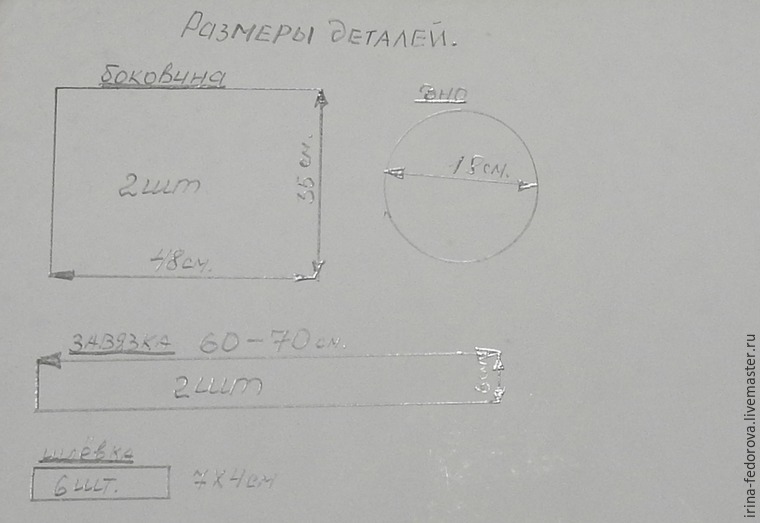 РАЗМЕРЫ ДЕТАЛЕЙ.
боковина
2 шт
35 см.
48 см.
дно
15 см.
ЗАВЯЗКА 60-70 см.
2 шт
шлёвка
6 шт.
7х4 см
irina-fedorova.livemaster.ru